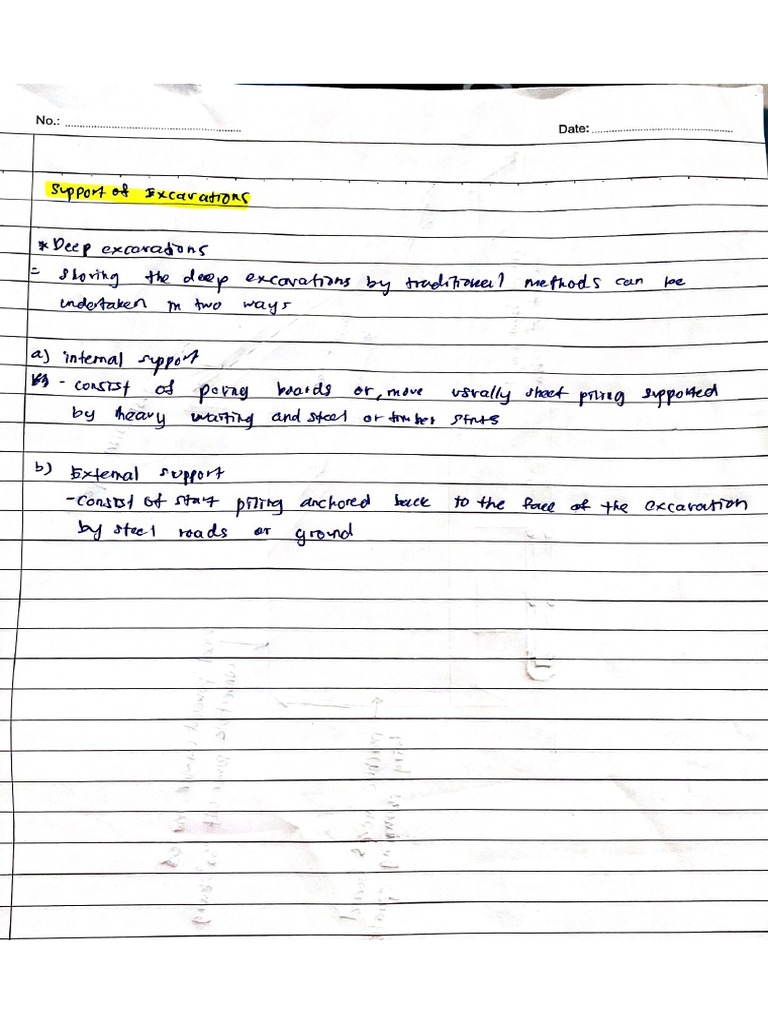 No.:
Date:
Support of Excavations
* Deep excavations
= Shoring the deep excavations by traditional methods can be
undertaken in two ways
a) internal support
- consist of poring boards or, more usually sheet piling supported
by heavy waiting and steel or timber struts
b) External support
- consist of start piling anchored back to the face of the excavation
by steel roads or ground